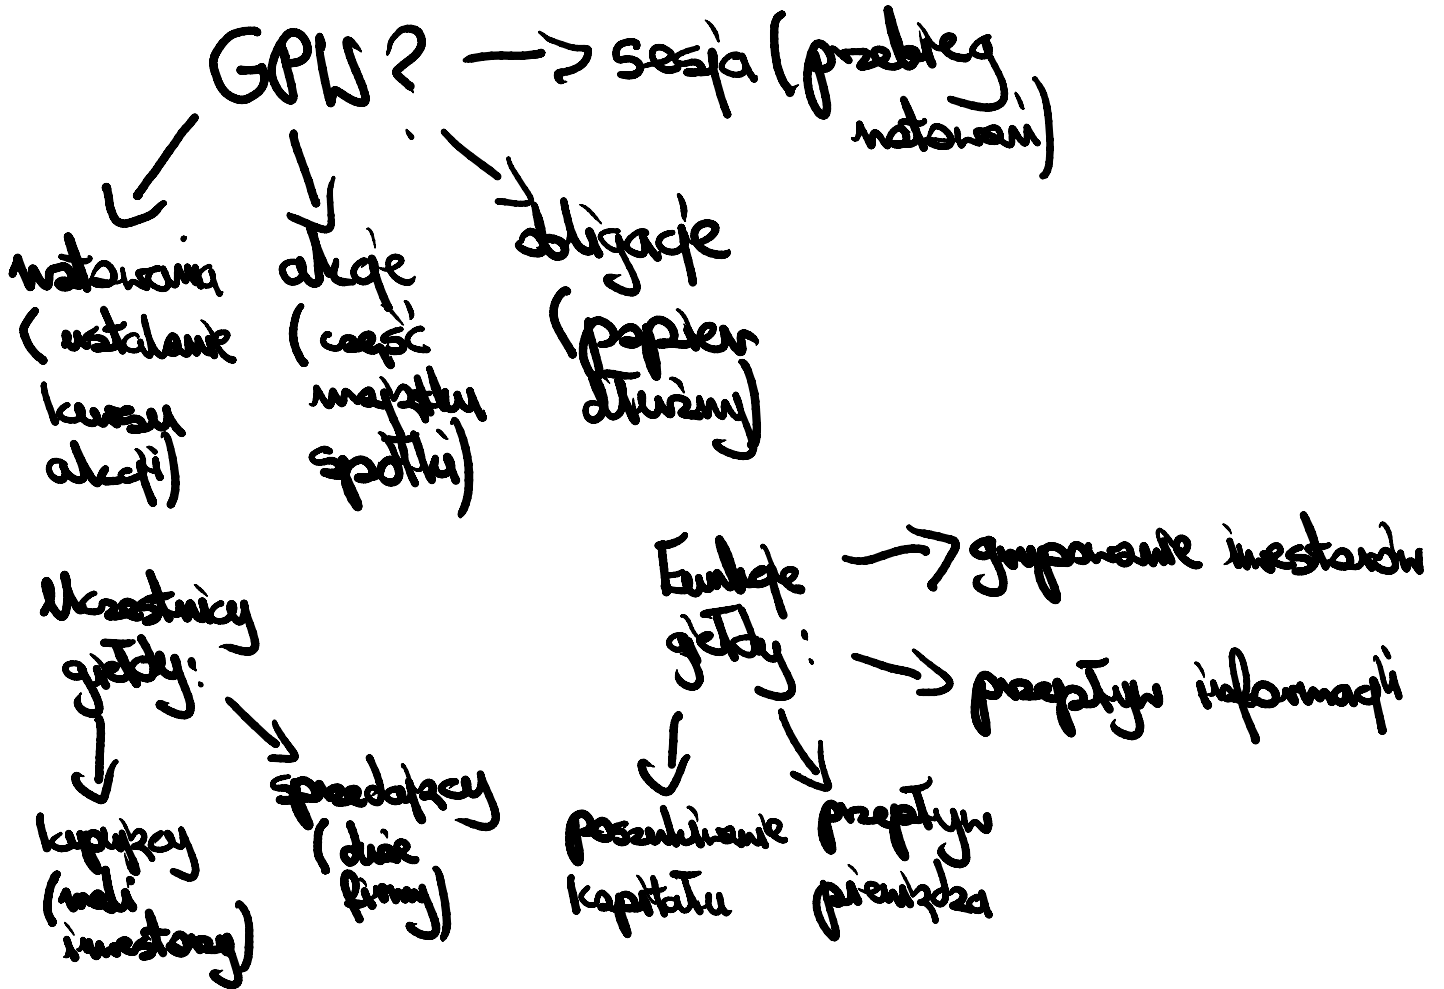 GPW? → sesja (przebieg
notowań)
notowania
(ustalanie
kursu
akcji)
akcje
(część
majątku
spółki)
obligacje
(papier
dłużny)
Uczestnicy
giełdy:
kupujący
(mali
inwestorzy)
sprzedający
(duże
firmy)
Funkcje
giełdy:
→ grupowanie inwestorów
→ przepływ informacji
poszukiwanie
kapitału
przepływ
pieniądza